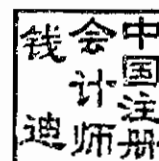 中国注册
会计师
钱迪